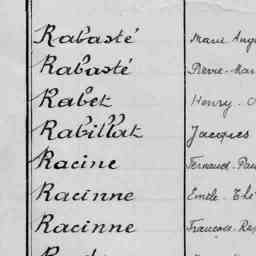 Rabasté Marie
Rabasté Pierre-Mar
Rabet Henry
Rabillat Jacques
Racine Fernand-Pau
Racinne Emile-Thé
Racinne François